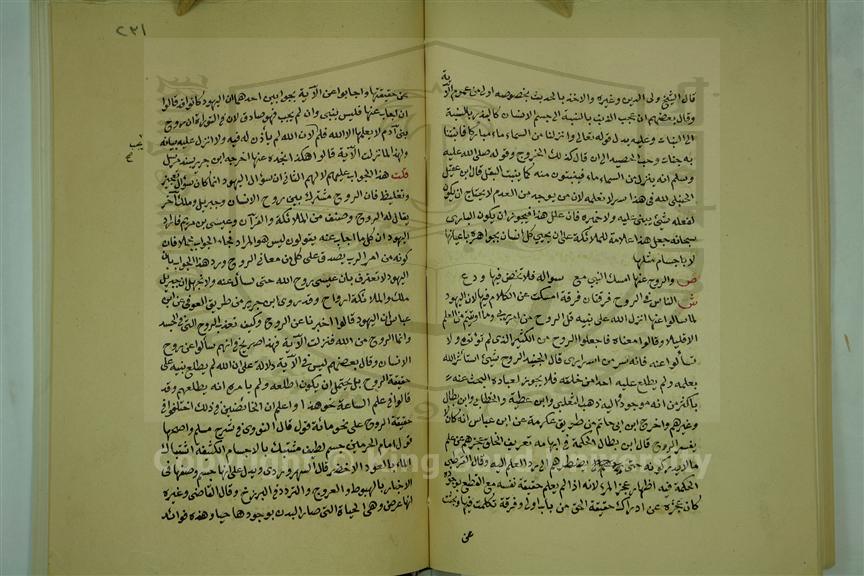 قال الشيخ ولي الدين وغيره والاخذ بالحديث بخصوصه اولى من عموم الآ
ية
وقال بعضهم ان عجب الذنب بالنسبة الى جسم الانسان كالبذر بالنسبة
الى النبات وعليه يدل قوله تعالى وانزلنا من السماء ماء مباركا فانبتنا
به جنات وحب الحصيد الى ان قال كذلك الخروج وقوله صلى الله عليه
وسلم انه ينزل من السماء ماء فينبتون منه كما ينبت البقل قال ابن عقيل
الحنبلي لله في هذا سر لا نعلمه لان من يوجد من العدم لا يحتاج ان يكون
لفعله شئ يبنى عليه ولا خميرة فان علل هذا فيجوز ان يكون الباري
سبحانه جعل هذا علامة للملائكة على ان يحيي كل انسان بجواهره باعيانها
لا باجسام مثلها
ص والروح عنها امسك النبي مع سواله فلا تخض فيها ودع
ش الناس في الروح فرقتان فرقة امسكت عن الكلام فيها لان اليهود
لما سالوا عنها انزل الله على نبيه قل الروح من امر ربي وما اوتيتم من العلم
الا قليلا وقالوا معناه فاجعلوا الروح من الكثير الذي لم تؤتوه ولا
تسالوا عنه فانه سر من اسراري قال الجنيد الروح شئ استاثر الله
بعلمه ولم يطلع عليه احدا من خلقه فلا يجوز لعباده البحث عنه
باكثر من انه موجود واليه ذهب الثعلبي وابن عطية والخطابي وابن بطال
وغيرهم واخرج ابن ابي حاتم من طريق عكرمة عن ابن عباس انه كان
يفسر الروح قال ابن بطال الحكمة في ابهامه تعريف الخلق عجزهم عن علم
ما لا يدركونه حتى يضطرهم الى رد العلم اليه وقال القرطبي
الحكمة فيه اظهار عجز المرء لانه اذا لم يعلم حقيقة نفسه مع القطع بوجوده
كان عجزه عن ادراك حقيقة الحق من باب اولى وفرقة تكلمت فيها وبحثت
عن
٢٣١
عن حقيقتها واجابوا عن الآية بجوابين احدهما ان اليهود كانوا قد قالوا
ان اجاب عنها فليس بنبي وان لم يجب فهو صادق لان في التوراة ان روح
بني آدم لا يعلمها الا الله فلم لان الله لم ياذن له فيه ولا انزل عليه بيانه
يجب
ولهذا لما نزلت الآية قالوا هكذا نجده عندنا اخرجه ابن جرير بسند مرسل
قلت هذا الجواب عليهم لا لهم الثاني ان سؤال اليهود انما كان سؤال تعجيز
وتغليظ فان الروح مشترك بين روح الانسان وجبريل وملك آخر
يقال له الروح وصنف من الملائكة والقرآن وعيسى بن مريم فاراد
اليهود ان كل ما اجاب عنه يقولون ليس هو المراد فجاء الجواب مجملا فان
كونه من امر الرب يصدق على كل من معاني الروح ويرد هذا الجواب بان
اليهود لا تعترف بان عيسى روح الله حتى تسال عنه ولا تجهل ان جبريل
ملك والملائكة ارواح وقد روى ابن جرير من طريق العوفي عن ابن
عباس ان اليهود قالوا اخبرنا عن الروح وكيف تعذب الروح التي في الجسد
وانما الروح من الله فنزلت الآية فهذا صريح في انهم سالوا عن روح
الانسان وقال بعضهم ليس في الآية دلالة على ان الله لم يطلع نبيه على
حقيقة الروح بل يحتمل ان يكون اطلعه ولم يامره انه يطلعهم وقد
قالوا في علم الساعة نحو هذا واعلم ان الخائضين في ذلك اختلفوا في
حقيقة الروح على نحو مائة قول قال النووي في شرح مسلم واصحها
قول امام الحرمين جسم لطيف مشتبك بالاجسام الكثيفة اشتباك
الماء بالعود الاخضر قال السهروردي ويدل على انها جسم وصفها في
الاخبار بالهبوط والعروج والتردد في البرزخ وقال القاضي وغيره
انها عرض وهي الحياة التي صار البدن بوجودها حيا وهذه فوائد